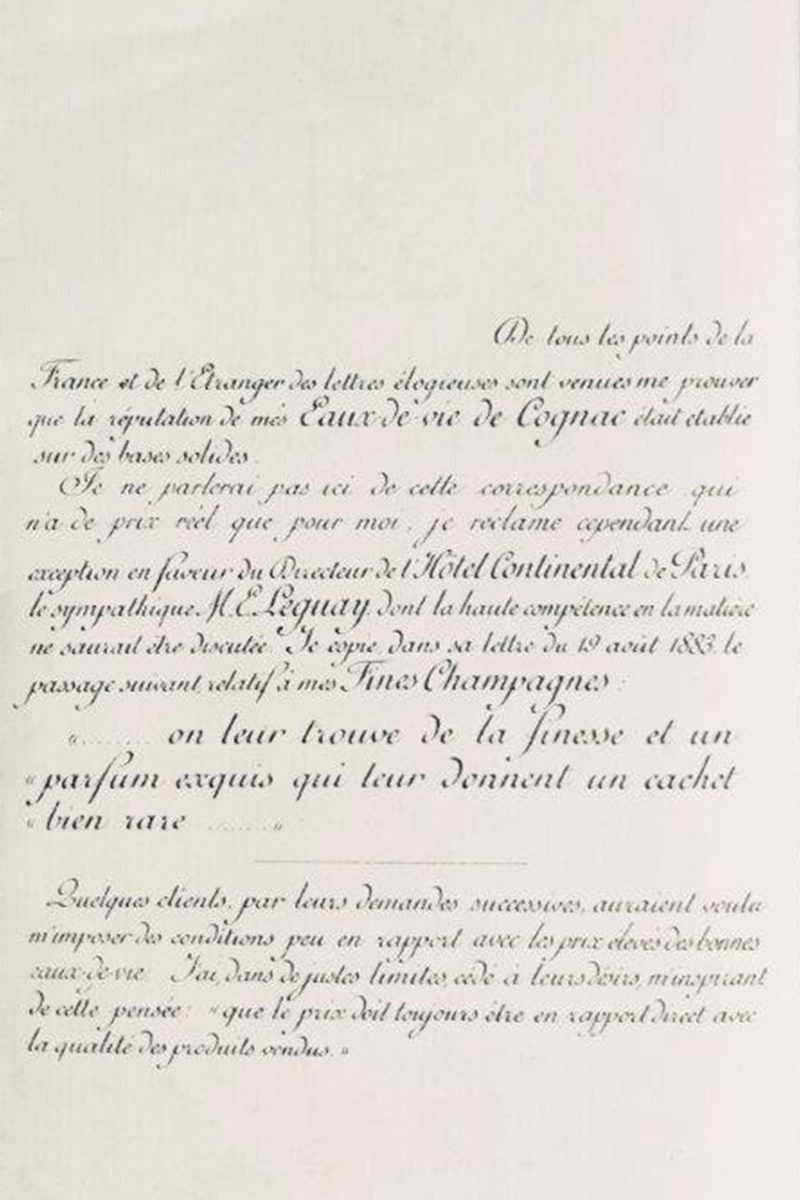 De tous les points de la
France et de l'Etranger des lettres élogieuses sont venues me prouver
que la réputation de mes Eaux-de-vie de Cognac était établie
sur des bases solides.
Je ne parlerai pas ici de cette correspondance qui
n'a de prix réel que pour moi, je réclame cependant une
exception en faveur du Directeur de l'Hôtel Continental de Paris
le sympathique M. E. Leguay dont la haute compétence en la matière
ne saurait être discutée. Je copie, dans sa lettre du 19 août 1883, le
passage suivant, relatif à mes Fines Champagnes :
« ........ on leur trouve de la finesse et un
« parfum exquis qui leur donnent un cachet
« bien rare ........ »
Quelques clients, par leurs demandes successives, auraient voulu
m'imposer des conditions peu en rapport avec les prix élevés des bonnes
eaux-de-vie. J'ai, dans de justes limites, cédé à leurs désirs, m'inspirant
de cette pensée: « que le prix doit toujours être en rapport direct avec
la qualité des produits vendus. »